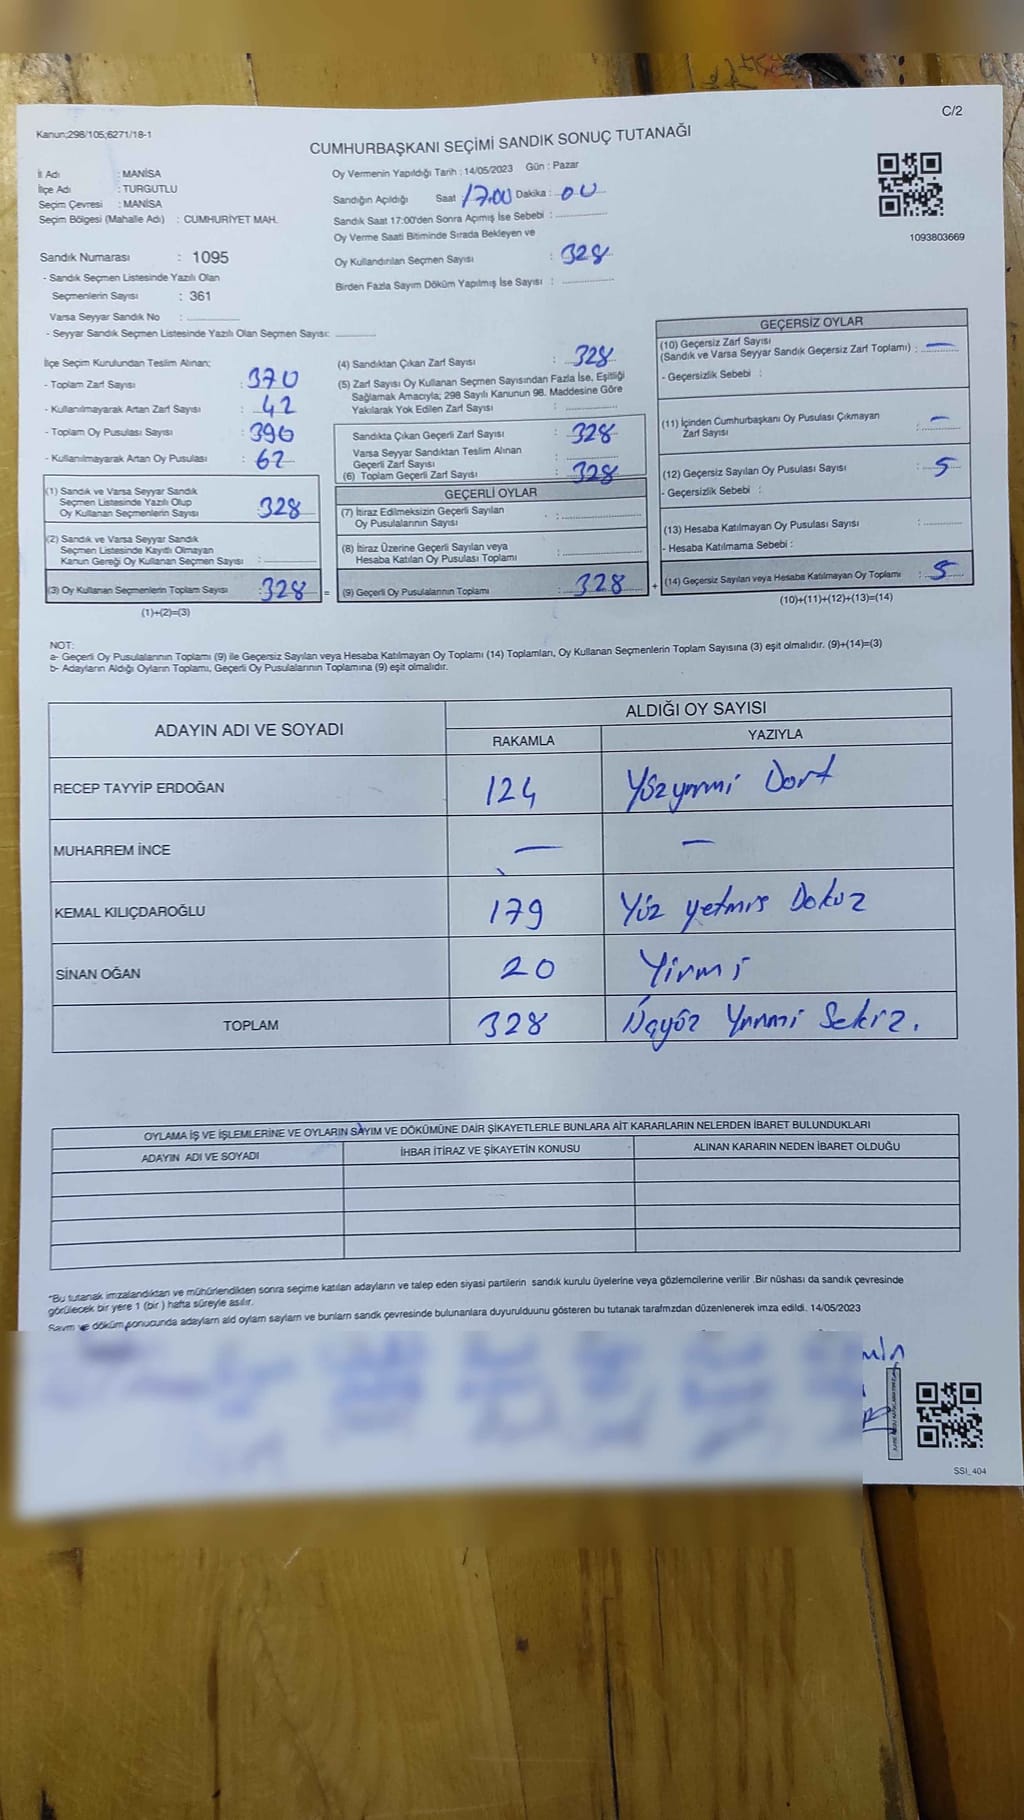 C/2
Kanun;298/105;6271/18-1
CUMHURBAŞKANI SEÇİMİ SANDIK SONUÇ TUTANAĞI
İl Adı : MANİSA
İlçe Adı : TURGUTLU
Seçim Çevresi : MANİSA
Seçim Bölgesi (Mahalle Adı) : CUMHURİYET MAH.
Sandık Numarası : 1095
- Sandık Seçmen Listesinde Yazılı Olan
Seçmenlerin Sayısı : 361
Varsa Seyyar Sandık No :
- Seyyar Sandık Seçmen Listesinde Yazılı Olan Seçmen Sayısı:
Oy Vermenin Yapıldığı Tarih : 14/05/2023 Gün : Pazar
Sandığın Açıldığı Saat 17.00 Dakika : 00
Sandık Saat 17:00'den Sonra Açımış İse Sebebi :
Oy Verme Saati Bitiminde Sırada Bekleyen ve
Oy Kullandırılan Seçmen Sayısı : 328
Birden Fazla Sayım Döküm Yapılmış İse Sayısı :
1093803669
İlçe Seçim Kurulundan Teslim Alınan;
- Toplam Zarf Sayısı : 370
- Kullanılmayarak Artan Zarf Sayısı : 42
- Toplam Oy Pusulası Sayısı : 390
- Kullanılmayarak Artan Oy Pusulası : 62
(1) Sandık ve Varsa Seyyar Sandık
Seçmen Listesinde Yazılı Olup
Oy Kullanan Seçmenlerin Sayısı : 328
(2) Sandık ve Varsa Seyyar Sandık
Seçmen Listesinde Kayıtlı Olmayan
Kanun Gereği Oy Kullanan Seçmen Sayısı :
(3) Oy Kullanan Seçmenlerin Toplam Sayısı : 328 =
(1)+(2)=(3)
(4) Sandıktan Çıkan Zarf Sayısı : 328
(5) Zarf Sayısı Oy Kullanan Seçmen Sayısından Fazla İse, Eşitliği
Sağlamak Amacıyla; 298 Sayılı Kanunun 98. Maddesine Göre
Yakılarak Yok Edilen Zarf Sayısı :
Sandıkta Çıkan Geçerli Zarf Sayısı : 328
Varsa Seyyar Sandıktan Teslim Alınan
Geçerli Zarf Sayısı :
(6) Toplam Geçerli Zarf Sayısı : 328
GEÇERLİ OYLAR
(7) İtiraz Edilmeksizin Geçerli Sayılan
Oy Pusulalarının Sayısı :
(8) İtiraz Üzerine Geçerli Sayılan veya
Hesaba Katılan Oy Pusulası Toplamı :
(9) Geçerli Oy Pusulalarının Toplamı : 328 +
GEÇERSİZ OYLAR
(10) Geçersiz Zarf Sayısı
(Sandık ve Varsa Seyyar Sandık Geçersiz Zarf Toplamı) : —
- Geçersizlik Sebebi :
(11) İçinden Cumhurbaşkanı Oy Pusulası Çıkmayan
Zarf Sayısı : —
(12) Geçersiz Sayılan Oy Pusulası Sayısı : 5
- Geçersizlik Sebebi :
(13) Hesaba Katılmayan Oy Pusulası Sayısı :
- Hesaba Katılmama Sebebi :
(14) Geçersiz Sayılan veya Hesaba Katılmayan Oy Toplamı : 5
(10)+(11)+(12)+(13)=(14)
NOT:
a- Geçerli Oy Pusulalarının Toplamı (9) ile Geçersiz Sayılan veya Hesaba Katılmayan Oy Toplamı (14) Toplamları, Oy Kullanan Seçmenlerin Toplam Sayısına (3) eşit olmalıdır. (9)+(14)=(3)
b- Adayların Aldığı Oyların Toplamı, Geçerli Oy Pusulalarının Toplamına (9) eşit olmalıdır.
ADAYIN ADI VE SOYADI ALDIĞI OY SAYISI
RAKAMLA YAZIYLA
RECEP TAYYİP ERDOĞAN 124 Yüzyirmi Dört
MUHARREM İNCE — —
KEMAL KILIÇDAROĞLU 179 Yüz yetmiş Dokuz
SİNAN OĞAN 20 Yirmi
TOPLAM 328 Üçyüz Yirmi Sekiz.
OYLAMA İŞ VE İŞLEMLERİNE VE OYLARIN SAYIM VE DÖKÜMÜNE DAİR ŞİKAYETLERLE BUNLARA AİT KARARLARIN NELERDEN İBARET BULUNDUKLARI
ADAYIN ADI VE SOYADI İHBAR İTİRAZ VE ŞİKAYETİN KONUSU ALINAN KARARIN NEDEN İBARET OLDUĞU
*Bu tutanak imzalandıktan ve mühürlendikten sonra seçime katılan adayların ve talep eden siyasi partilerin sandık kurulu üyelerine veya gözlemcilerine verilir .Bir nüshası da sandık çevresinde
görülecek bir yere 1 (bir ) hafta süreyle asılır.
Sayım ve döküm sonucunda adayların ald oylam saylam ve bunlarn sandk çevresinde bulunanlara duyurulduunu gösteren bu tutanak tarafmzdan düzenlenerek imza edildi. 14/05/2023
SSI_404